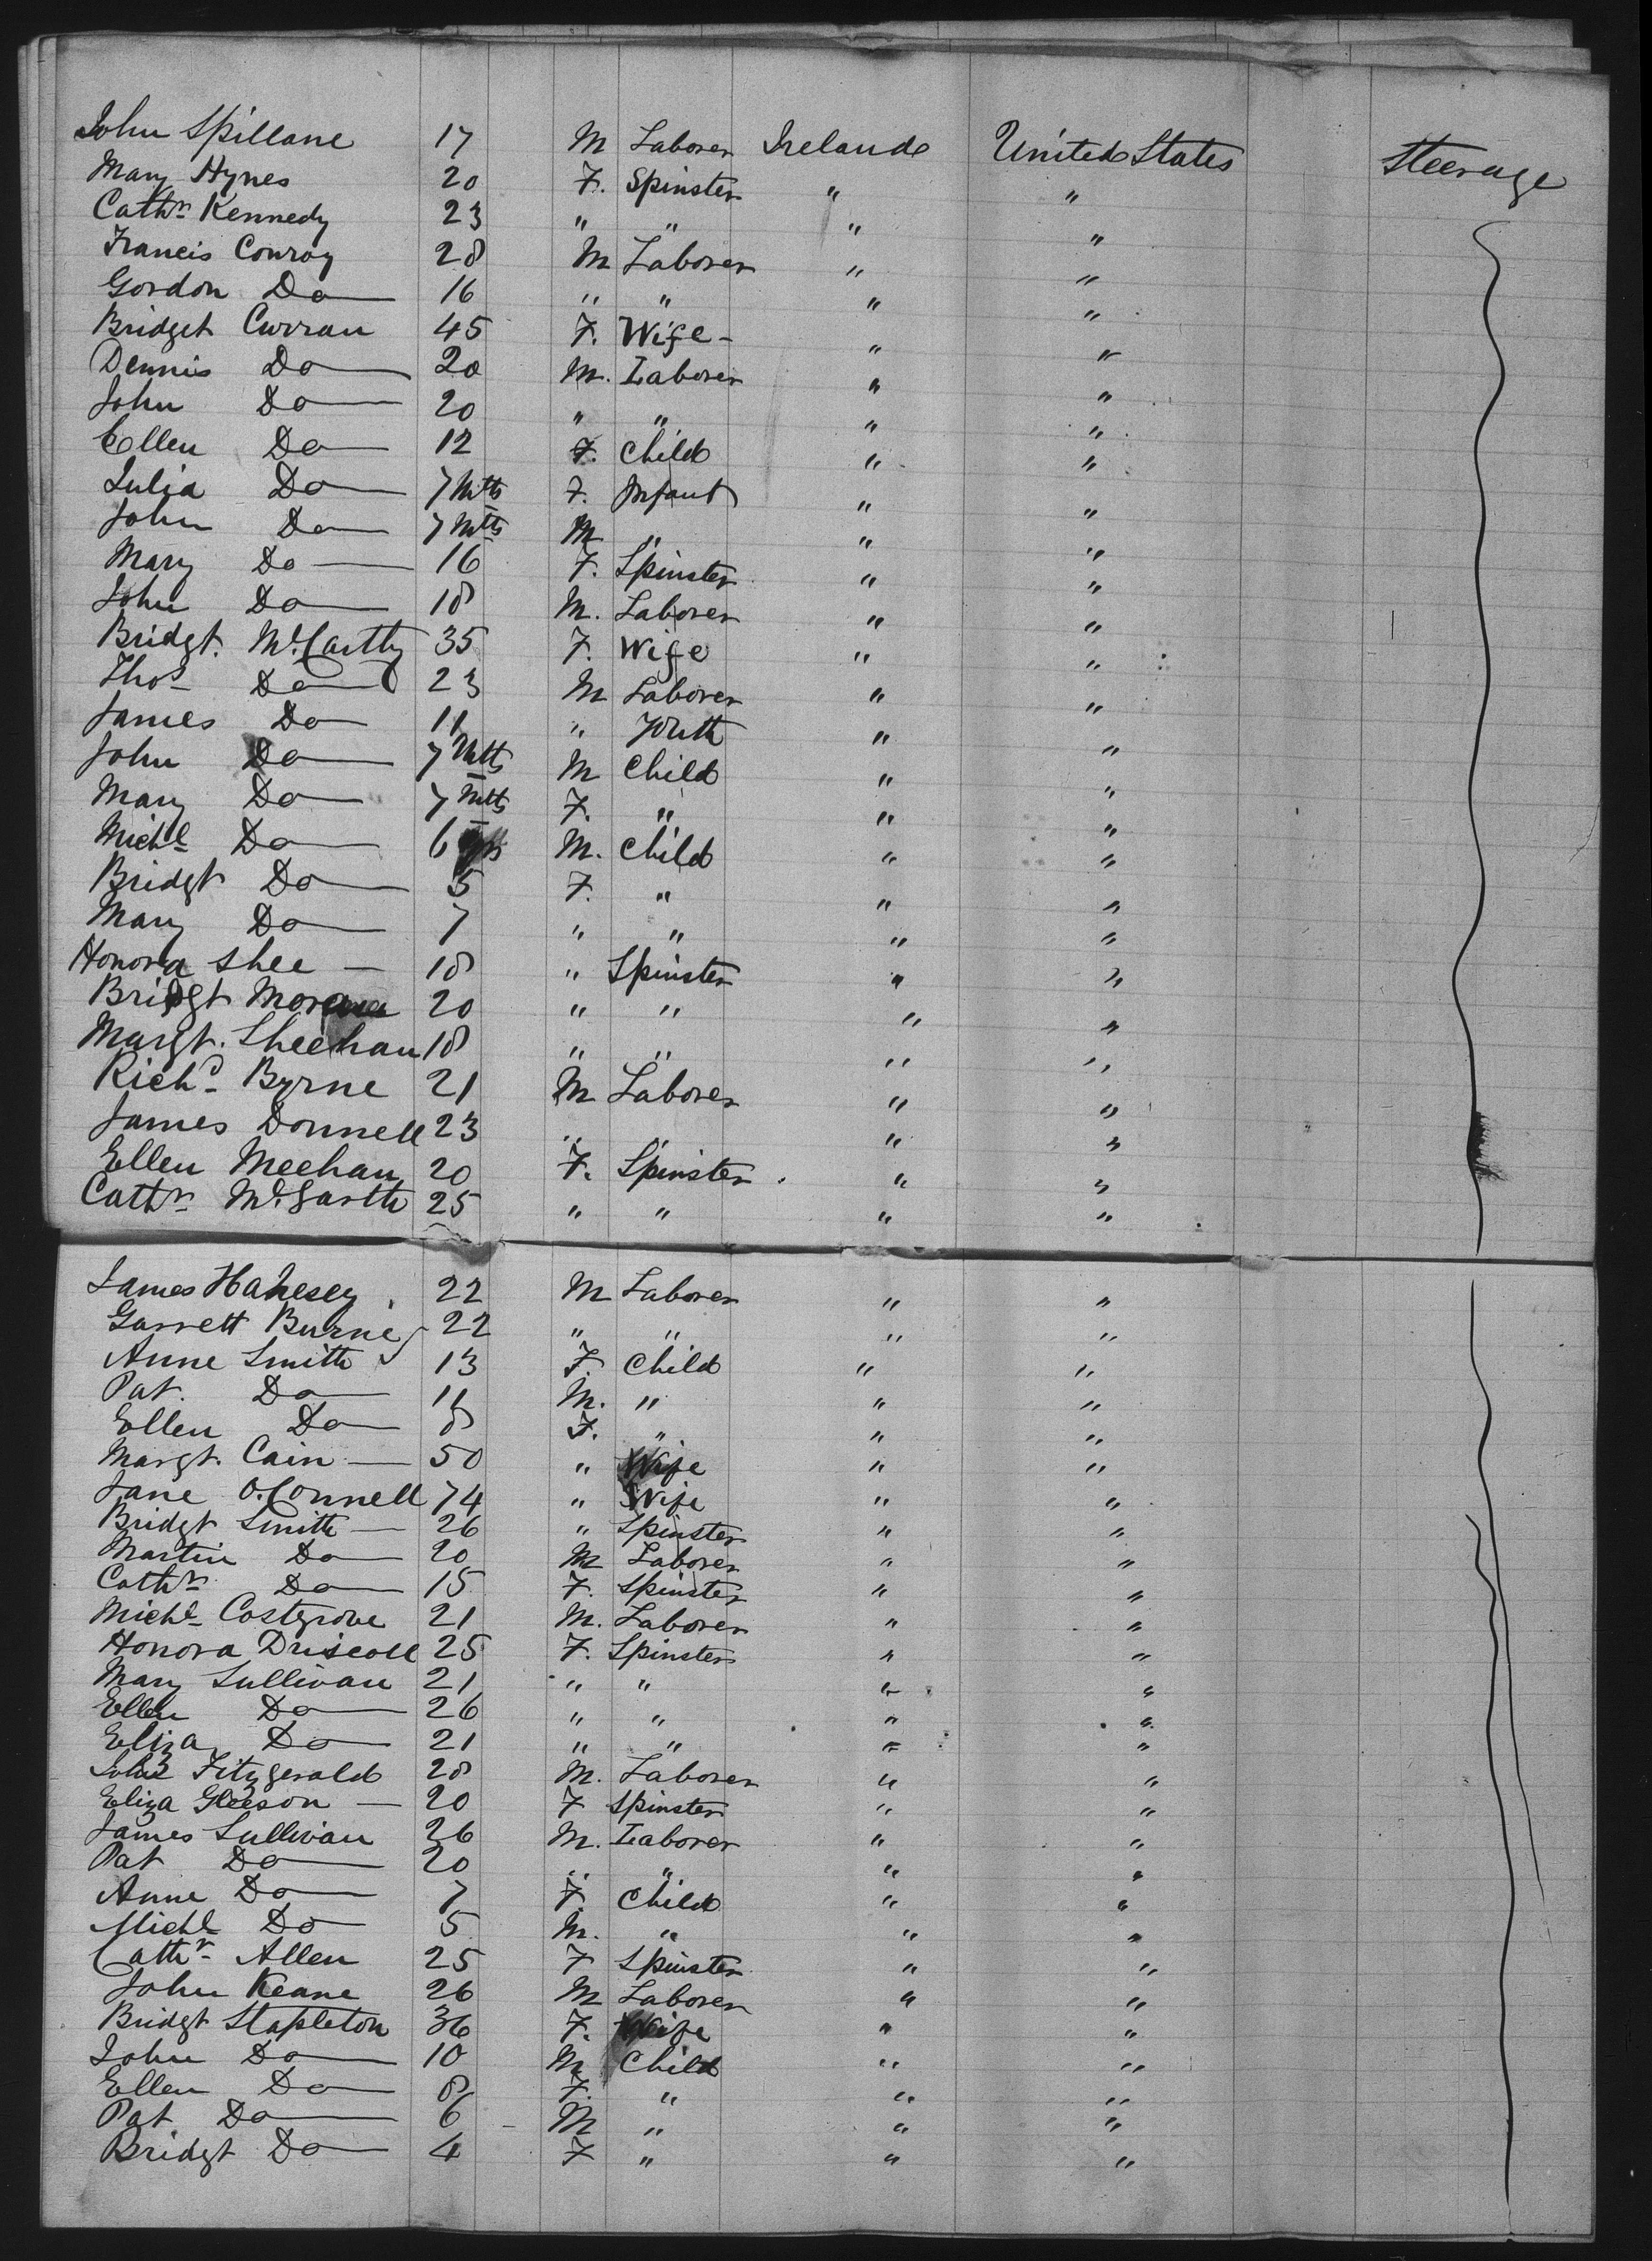 John Spillane 17 M Laborer Ireland United States Steerage
Mary Hynes 20 F. Spinster " "
Cathn Kennedy 23 " " " "
Francis Conroy 28 M Laborer " "
Gordon Do 16 " " " "
Bridget Curran 45 F. Wife - " "
Dennis Do 20 M. Laborer " "
John Do 20 " " " "
Ellen Do 12 F. Child " "
Julia Do 7 Mths F. Infant " "
John Do 7 Mths M " " "
Mary Do 16 F. Spinster " "
John Do 18 M. Laborer " "
Bridgt. McCarthy 35 F. Wife " "
Thos Do 23 M Laborer " "
James Do 11 " Youth " "
John Do 7 Mths M Child " "
Mary Do 7 Mths F. " " "
Michl Do 6 M. Child " "
Bridgt Do 5 F. " " "
Mary Do 7 " " " "
Honora Shee — 18 " Spinster " "
Bridgt 20 " " " "
Margt. Sheehan 18 " " " "
Richd Byrne 21 M Laborer " "
James Donnell 23 " " " "
Ellen Meehan 20 F. Spinster " "
Cathn 25 " " " "
James 22 M Laborer " "
Garrett Burne 22 " " " "
Anne Smith 13 F Child " "
Pat. Do 11 M. " " "
Ellen Do 8 F. " " "
Margt. Cain — 50 " Wife " "
Jane O.Connell 74 " Wife " "
Bridgt Smith — 26 " Spinster " "
Martin Do 20 M Laborer " "
Cathn Do 15 F. Spinster " "
Michl Costgrove 21 M. Laborer " "
Honora Driscoll 25 F. Spinster " "
Mary Sullivan 21 " " " "
Ellen Do 26 " " " "
Eliza Do 21 " " " "
John Fitzgerald 28 M. Laborer " "
Eliza Gleeson — 20 F Spinster " "
James Sullivan 26 M. Laborer " "
Pat Do 20 " " " "
Anne Do 7 F Child " "
Michl Do 5 M. " " "
Cathn Allen 25 F Spinster " "
John Keane 26 M Laborer " "
Bridgt Stapleton 36 F. Wife " "
John Do 10 M Child " "
Ellen Do 8 F. " " "
Pat Do 6 M " " "
Bridgt Do 4 F " " "